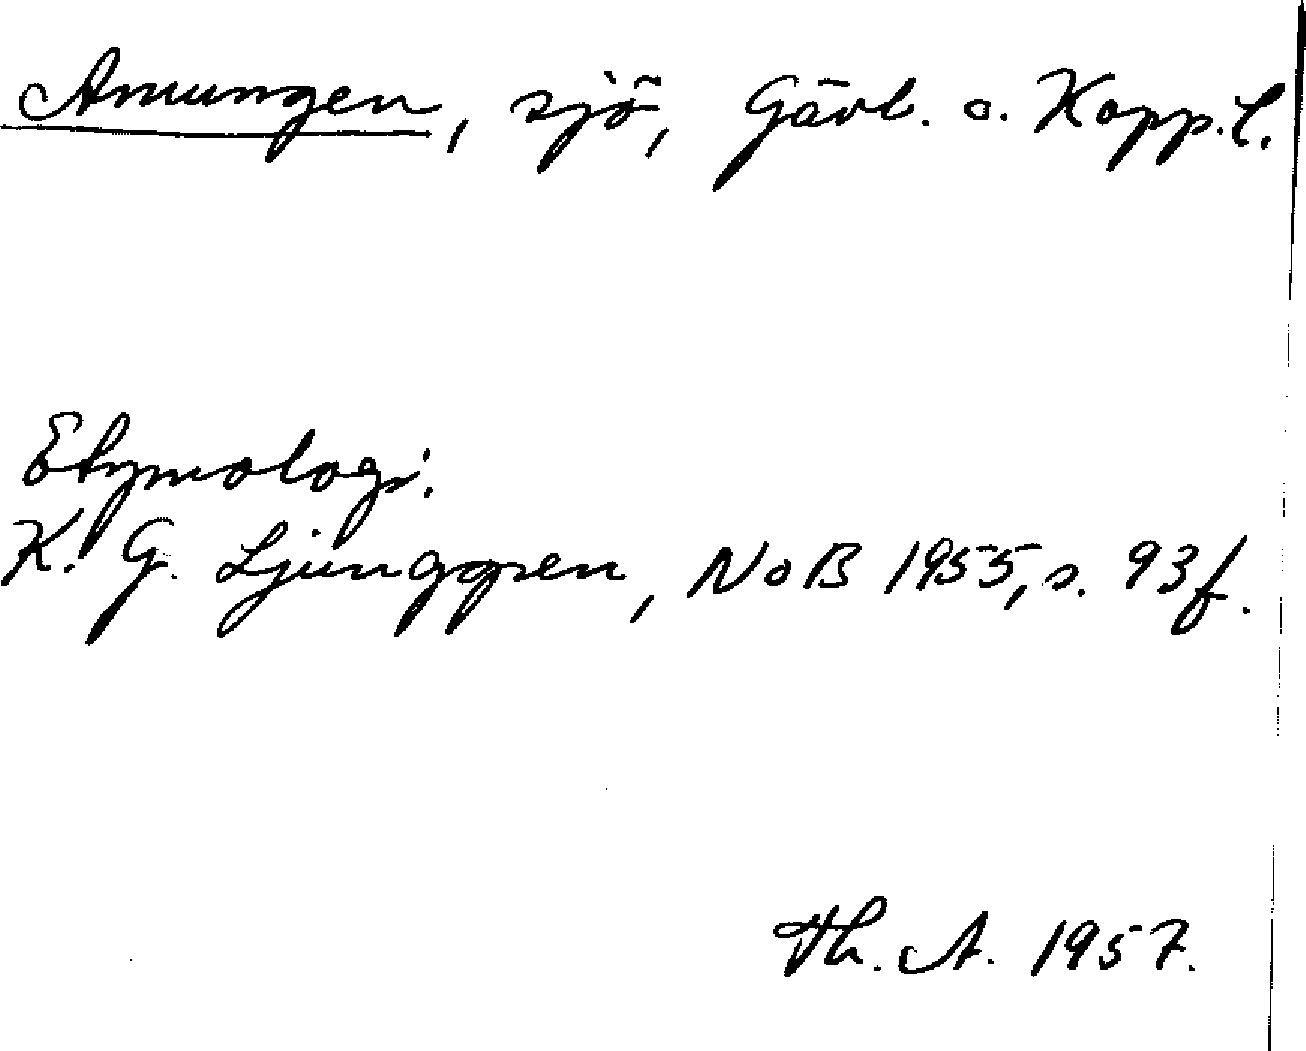 Amungen, sjö, Gävl. o. Kopp. l.
Etymologi:
K. G. Ljunggren, NoB 1955, s. 93 f.
Th. A. 1957.